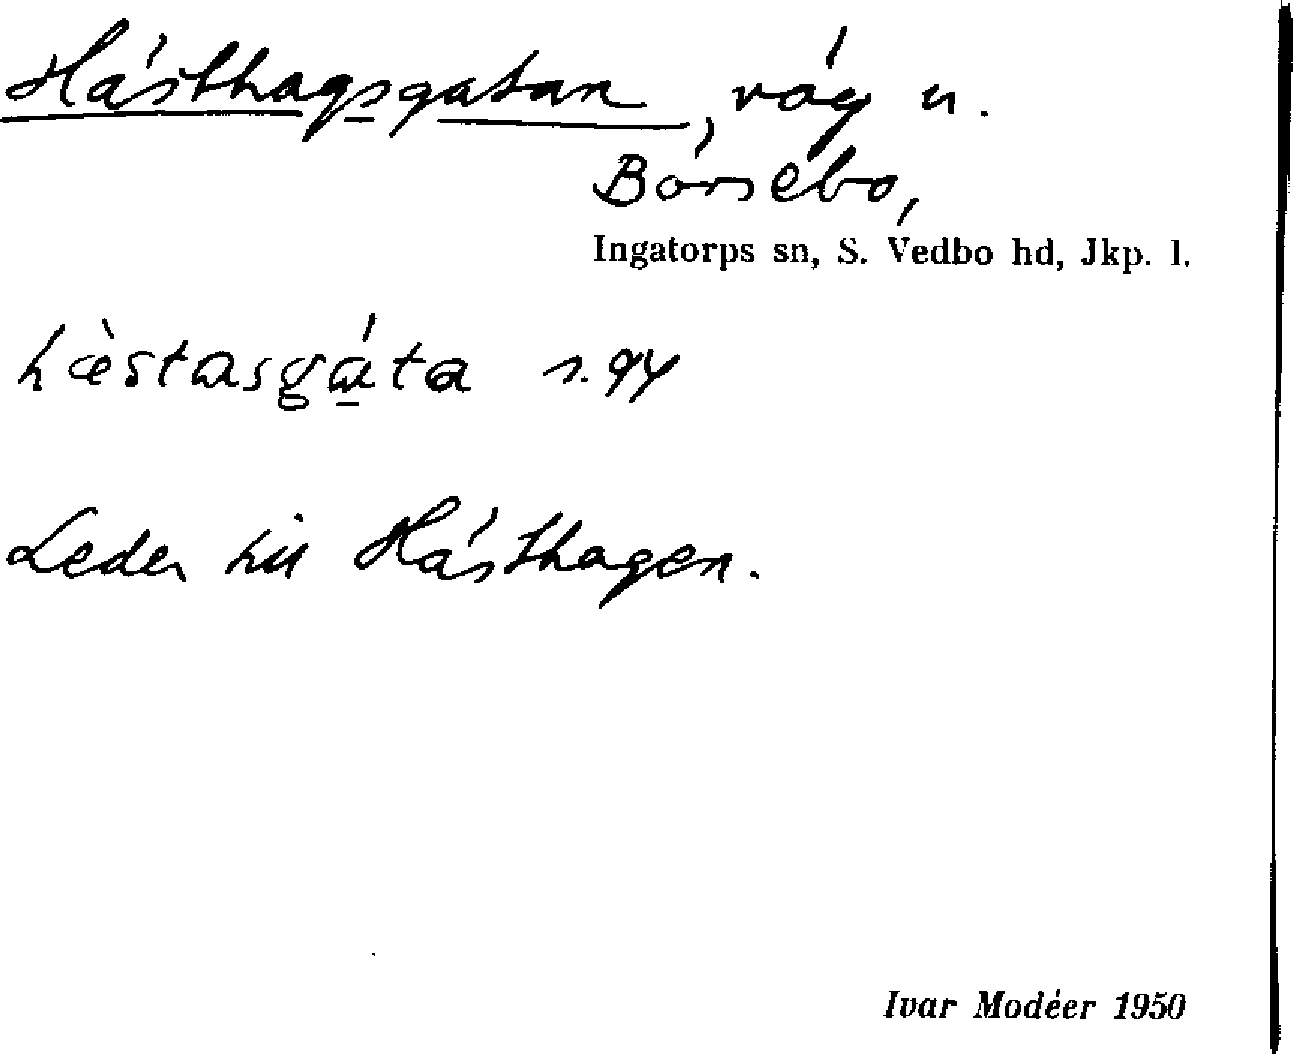 Hästhagsgatan, väg u.
Börsebo,
Ingatorps sn, S. Vedbo hd, Jkp. l.
hæ̀stasgáta s. gy
Leder till Hästhagen.
Ivar Modéer 1950